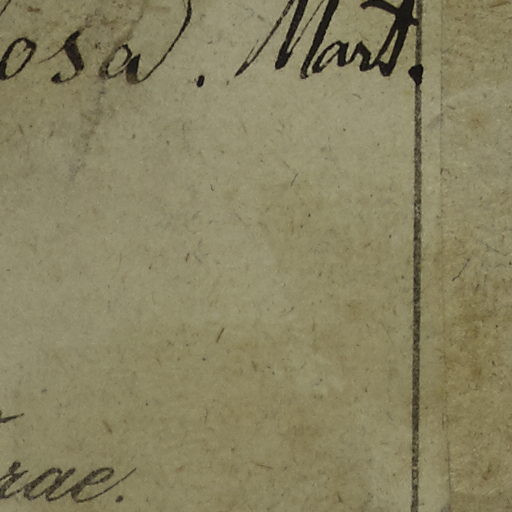 osa. Mart.
rae.